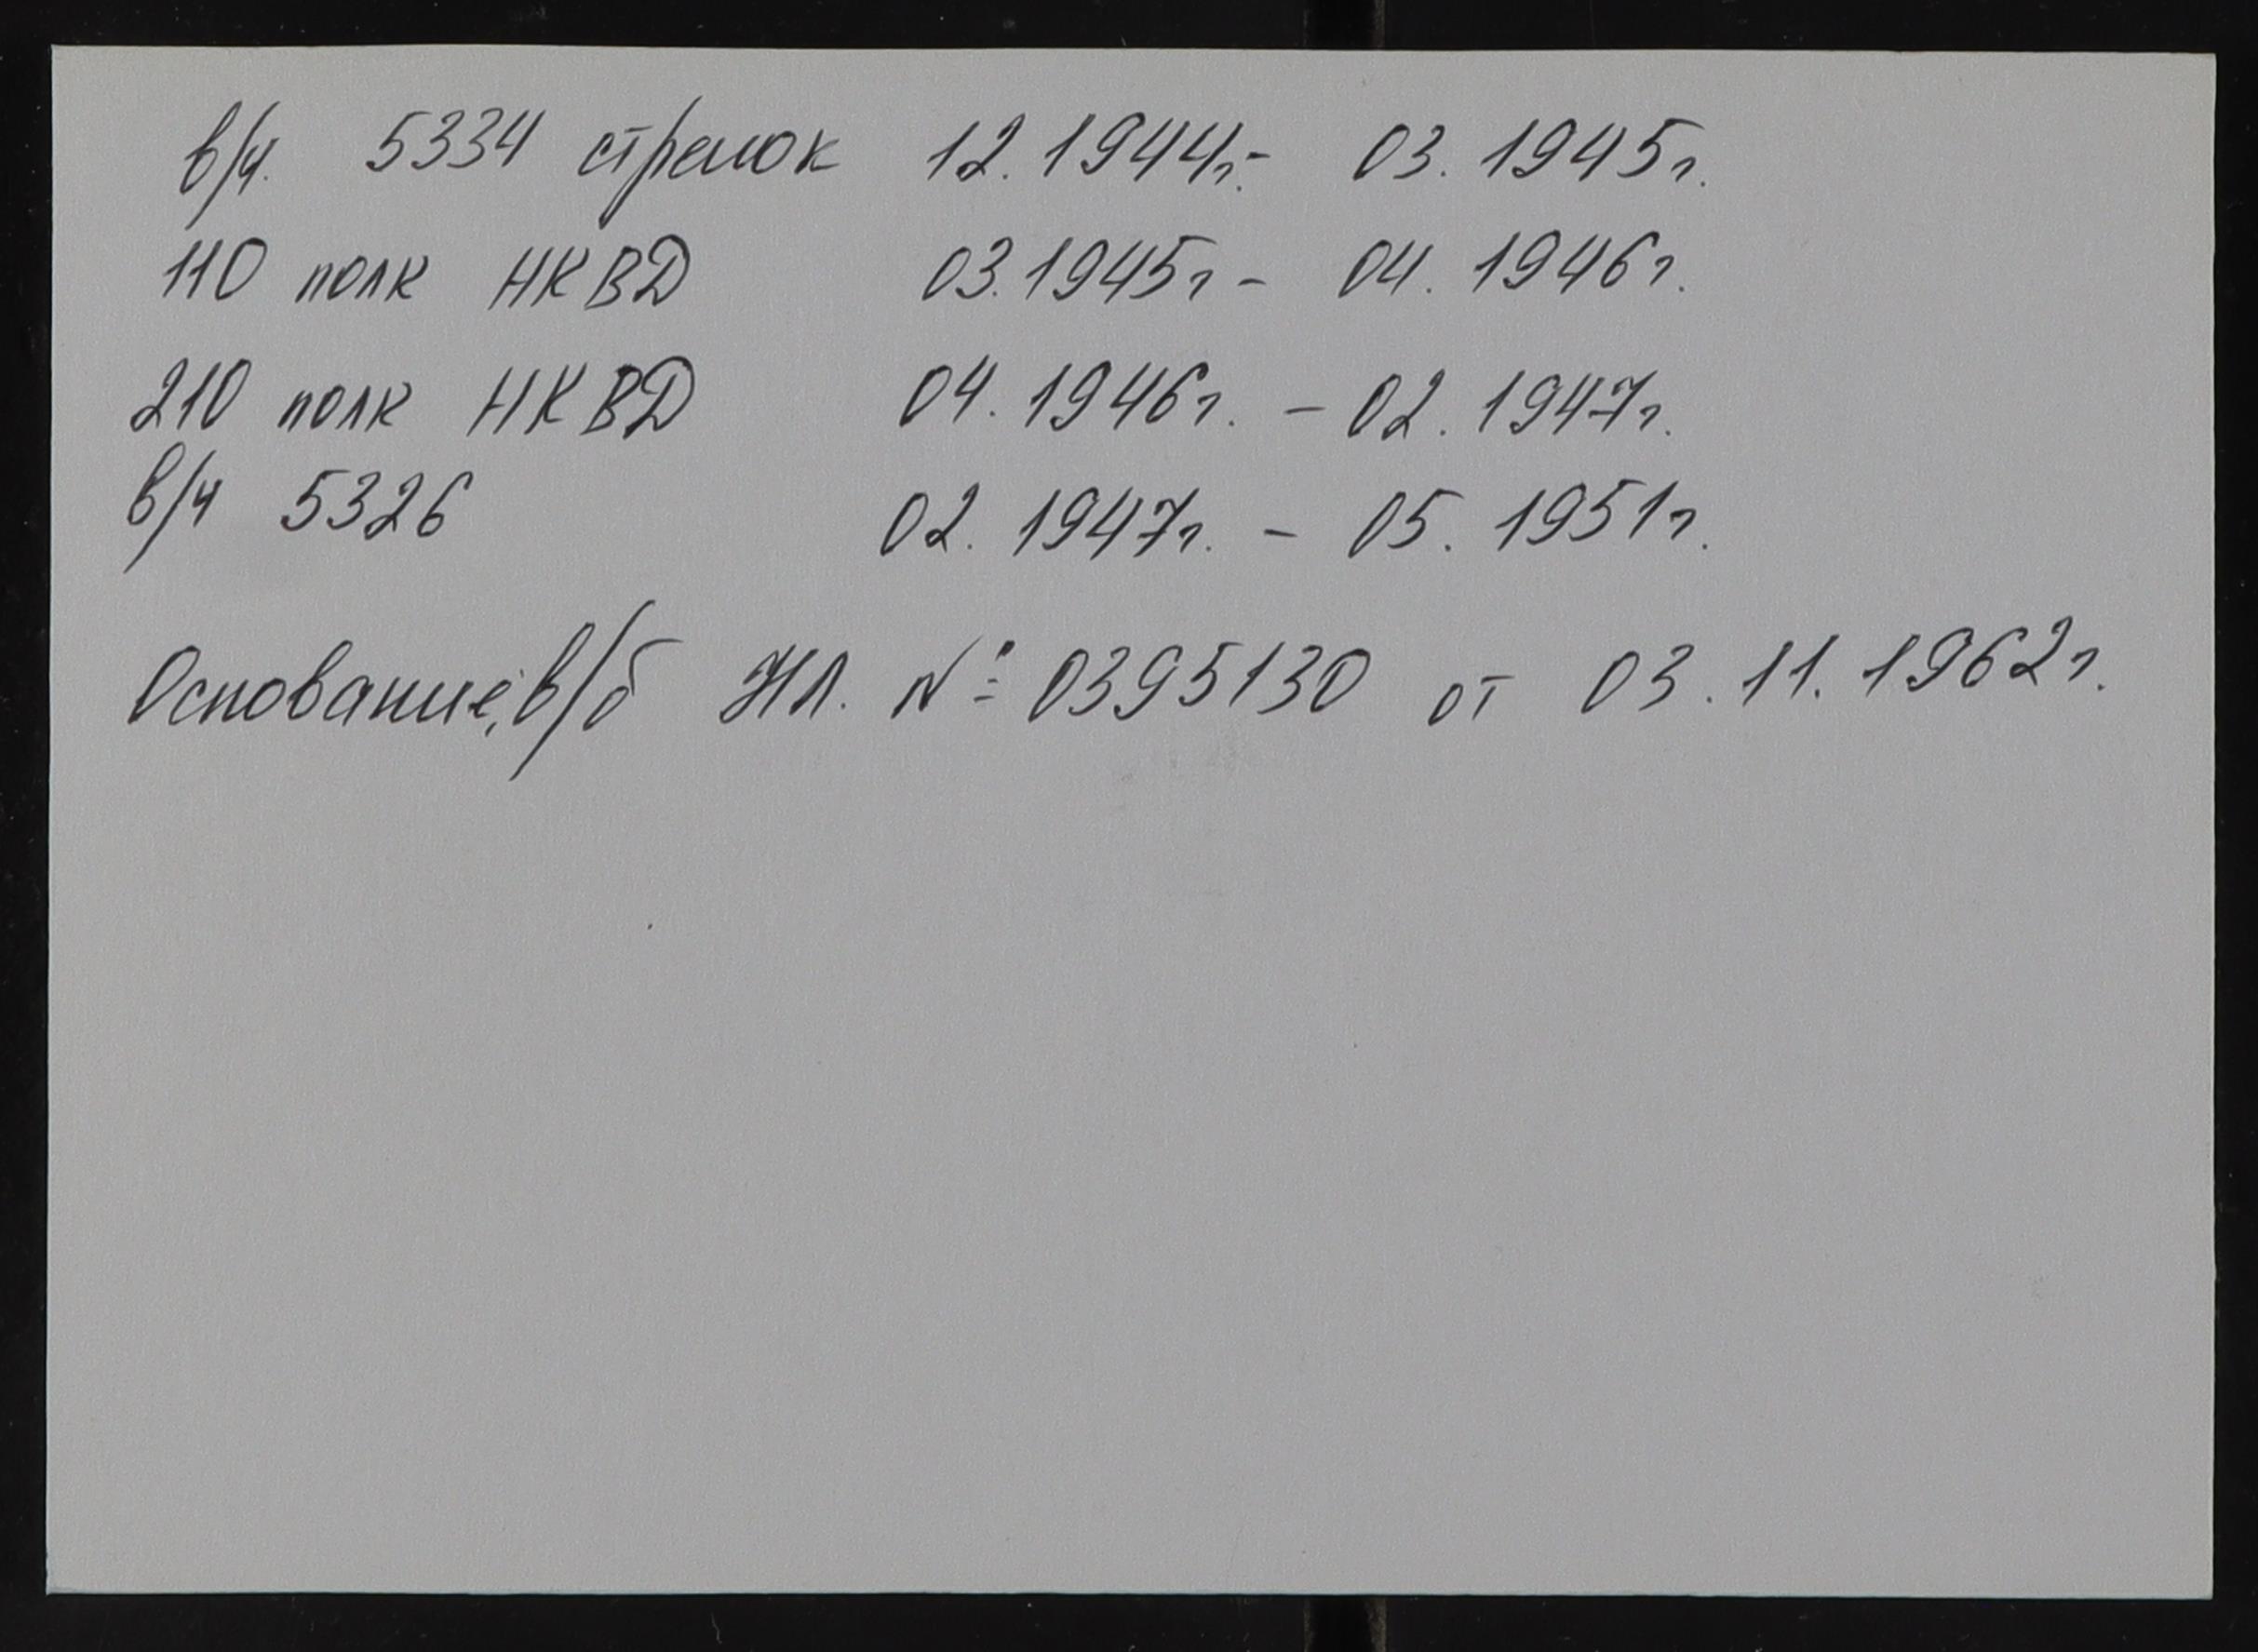 в/ч. 5334 стрелок 12.1944г.- 03.1945г.
110 полк НКВД 03.1945г - 04.1946г.
210 полк НКВД 04.1946г. - 02.1947г.
в/ч 5326 02.1947г. - 05.1951г.
Основание: в/б НЛ. № 0395130 от 03.11.1962г.